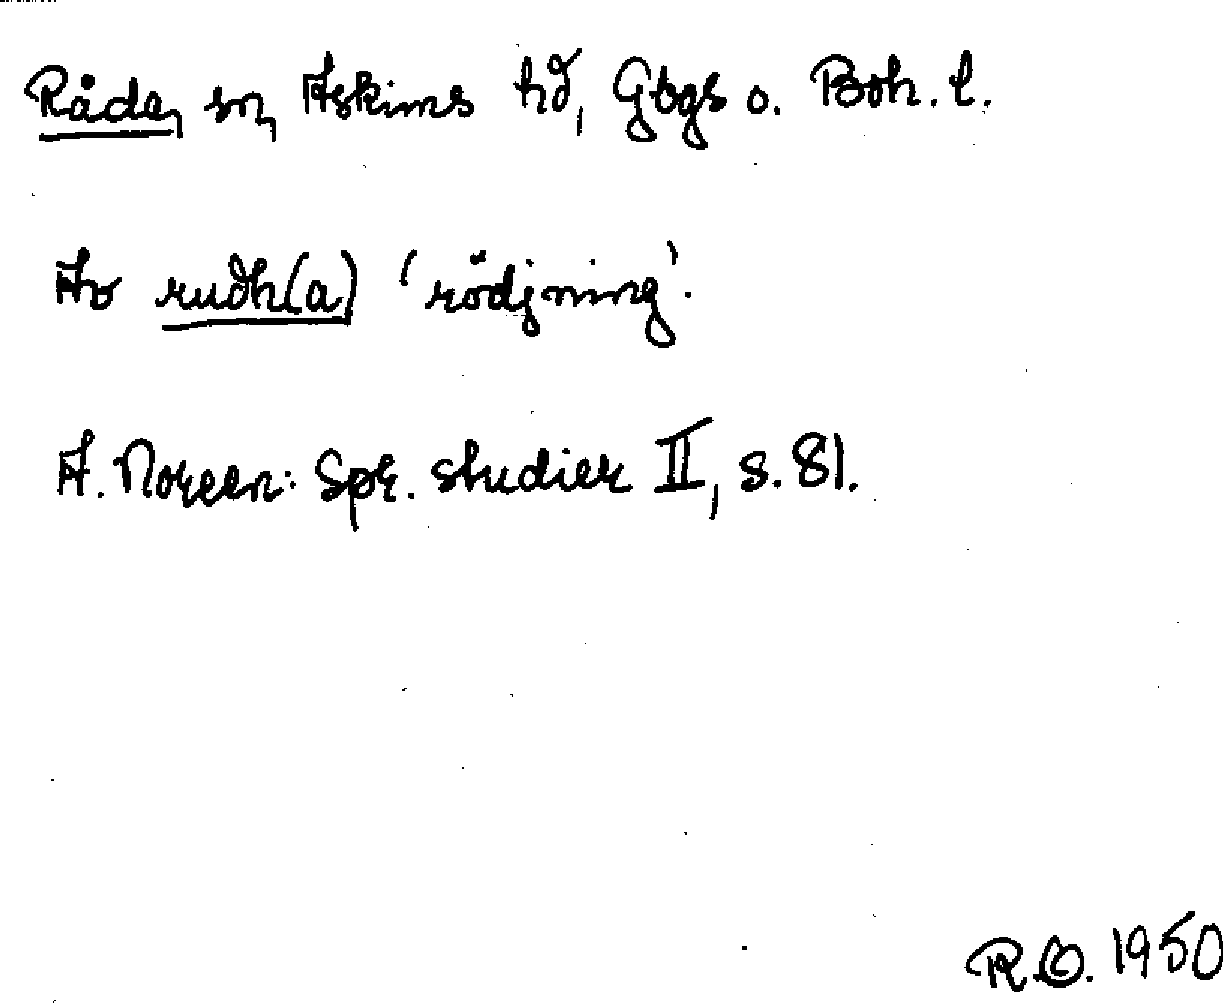 Råda, sn, Askims hd, Gbgs o. Boh. l.
Av rudh(a) 'rödjning'.
A. Noreen: Spr. studier II, s. 81.
R.O. 1950